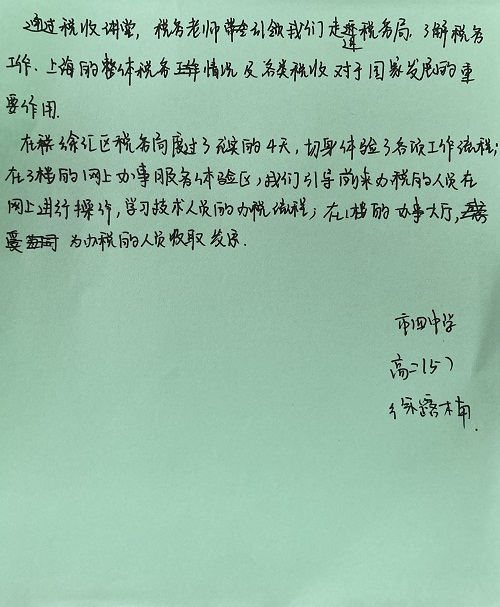 通过税收讲堂，税务老师带领我们走进税务局，了解税务
工作、上海的整体税务情况及各类税收对于国家发展的重
要作用.
在徐汇区税务局度过了充实的4天，切身体验了各项工作流程；
在3楼的网上办事服务体验区，我们引导前来办税的人员在
网上进行操作，学习技术人员的办税流程；在1楼的办事大厅，
为办税的人员收取发票.
市四中学
高二(5)
徐璐楠.